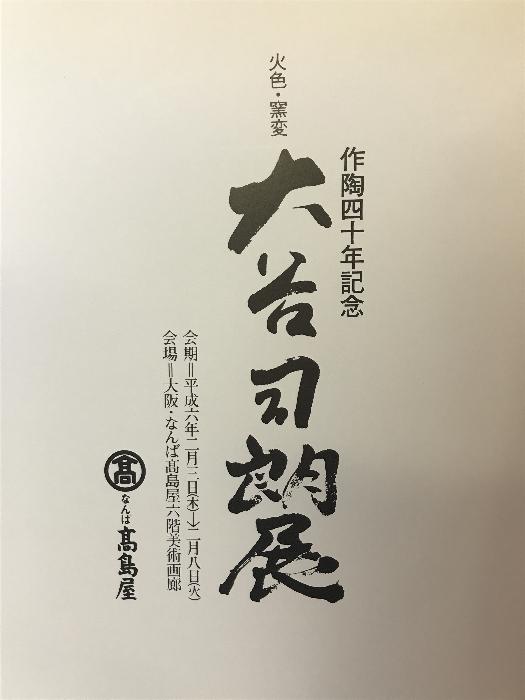 作陶四十年記念
火色・窯変
大谷司朗展
会期＝平成六年二月三日(木)→二月八日(火)
会場＝大阪・なんば髙島屋六階美術画廊
髙
なんば
髙島屋